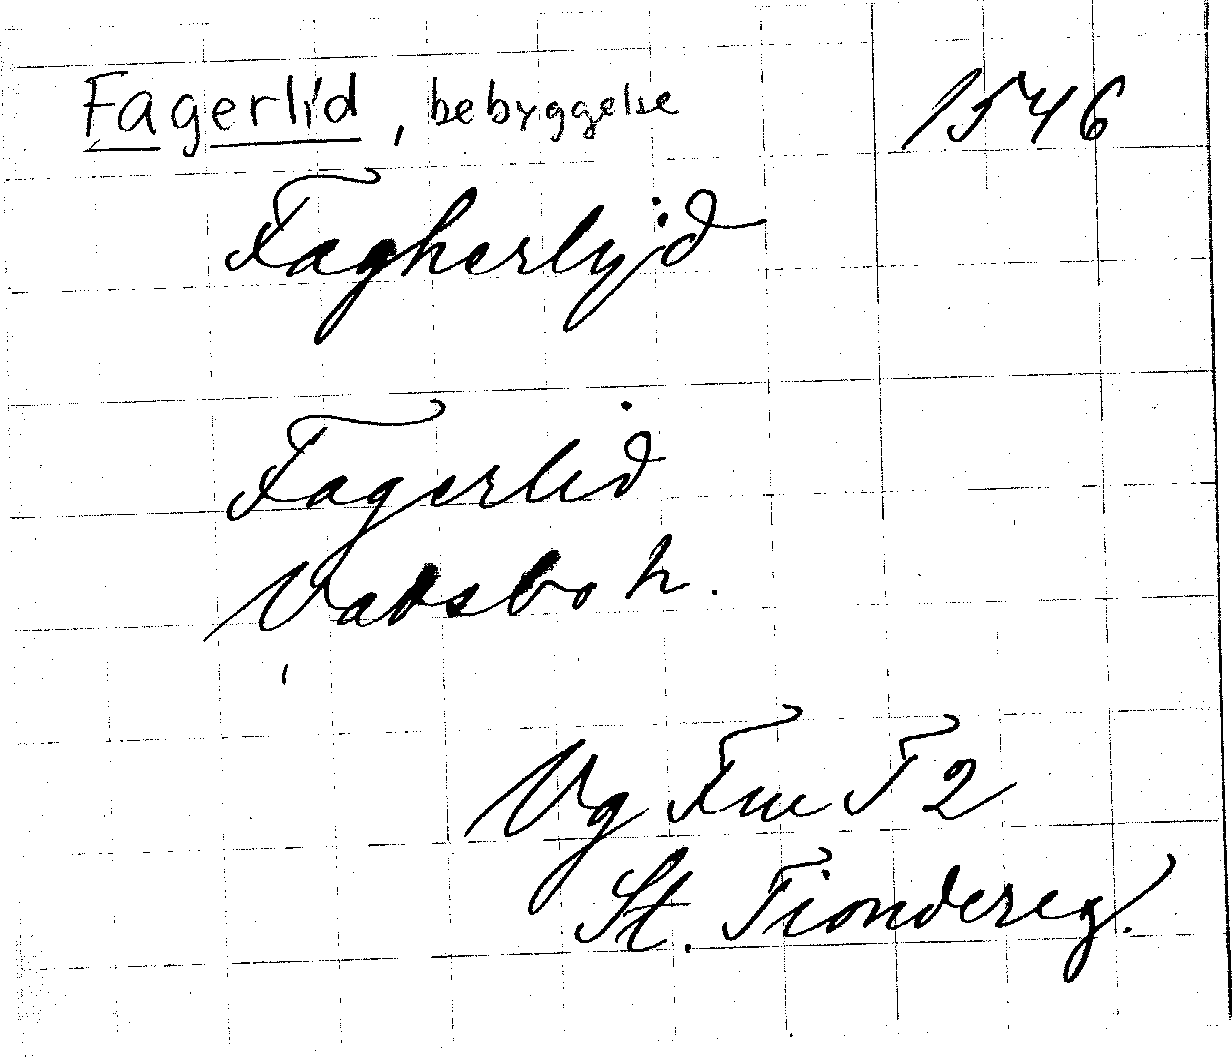 Fagerlid, bebyggelse 1546
Fagherlijd
Fagerlid
Vadsbo h.
Vg Fue T2
St. Tiondereg.